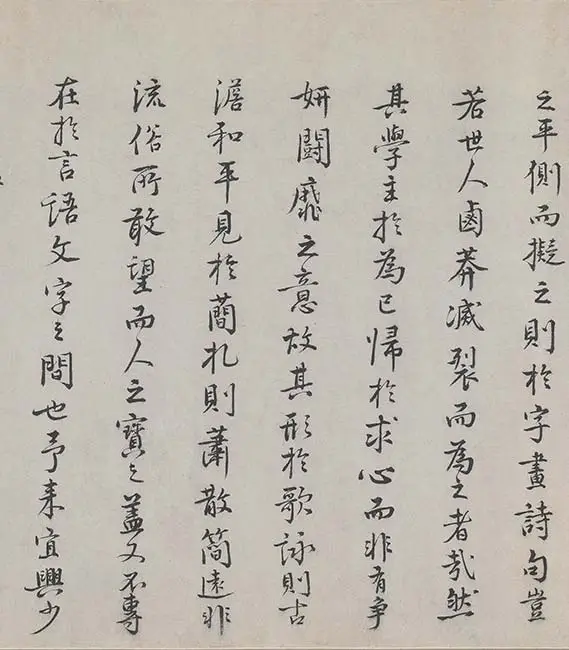 之平側而擬之則於字畫詩句豈
若世人鹵莽滅裂而為之者哉然
其學主於為己歸於求心而非有爭
妍鬪靡之意故其形於歌詠則古
澹和平見於蕳札則蕭散簡遠非
流俗所敢望而人之寶之蓋又不專
在於言語文字之間也予来宜興少